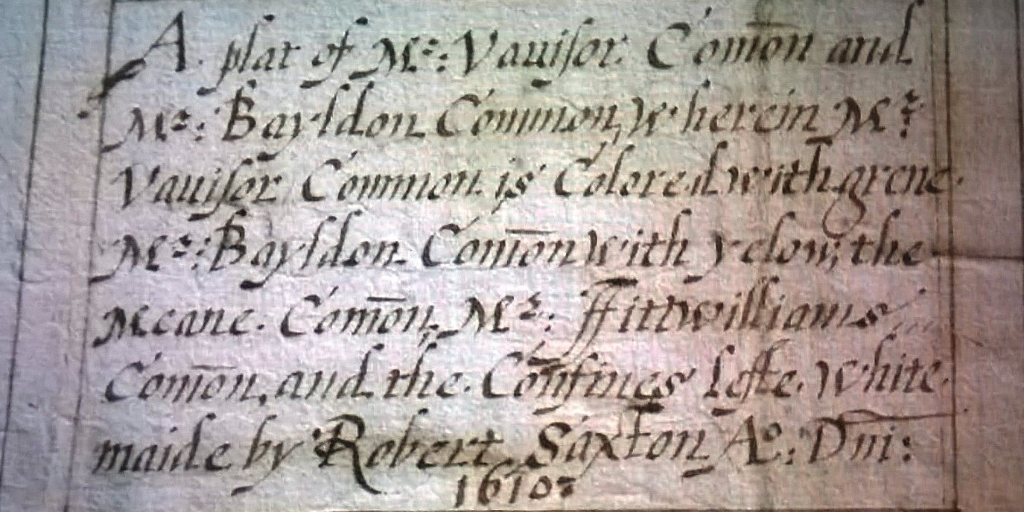 A plat of Mr: Vauisor Com̄on and
Mr: Bayldon Common, wherein Mr:
Vauisor Common is Colored with grene.
Mr: Bayldon Com̄on with yelow, the
Meane. Com̄on, Mr: ffittwilliams
Com̄on, and the Confines lefte. white.
maide by Robert Saxton Ao: Dni:
1610: